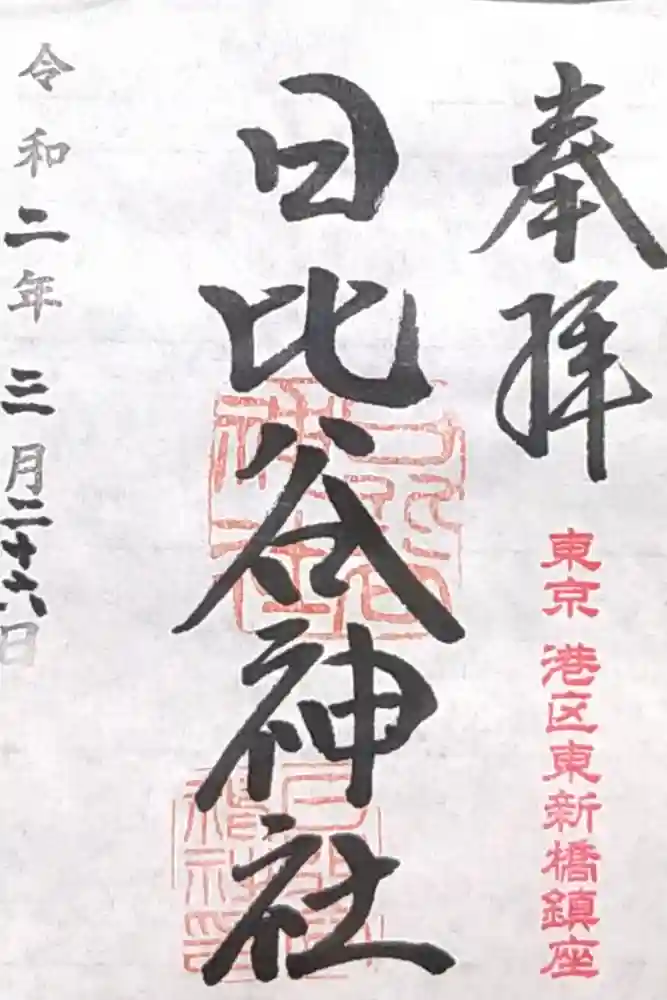 奉拝
東京 港区東新橋鎮座
日比谷神社
令和二年 三月二十六日